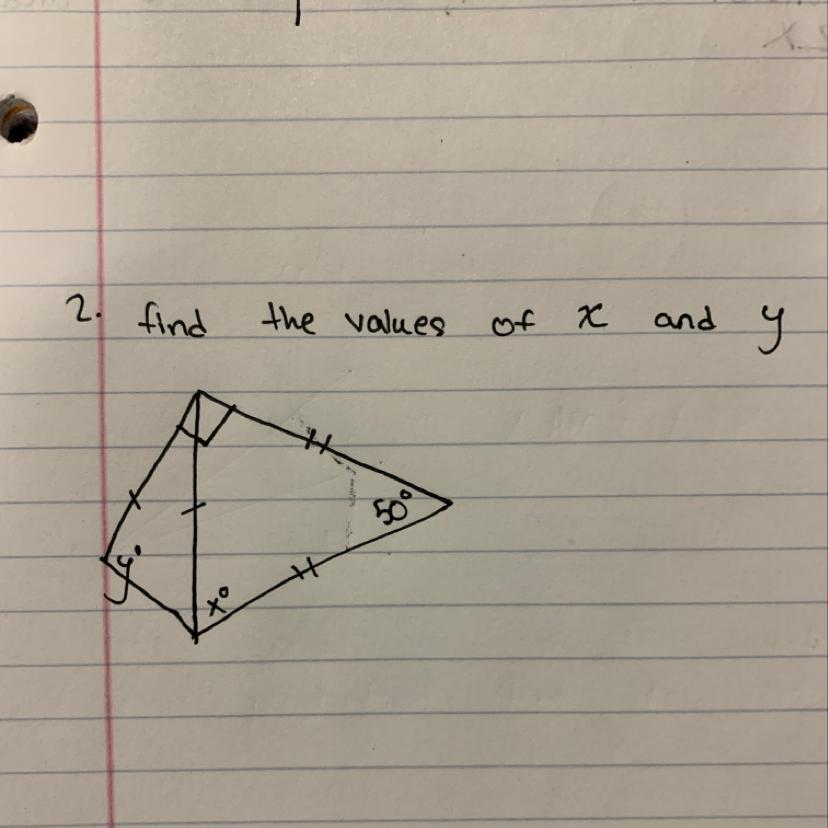 2. find the values of x and y
50°
y°
x°